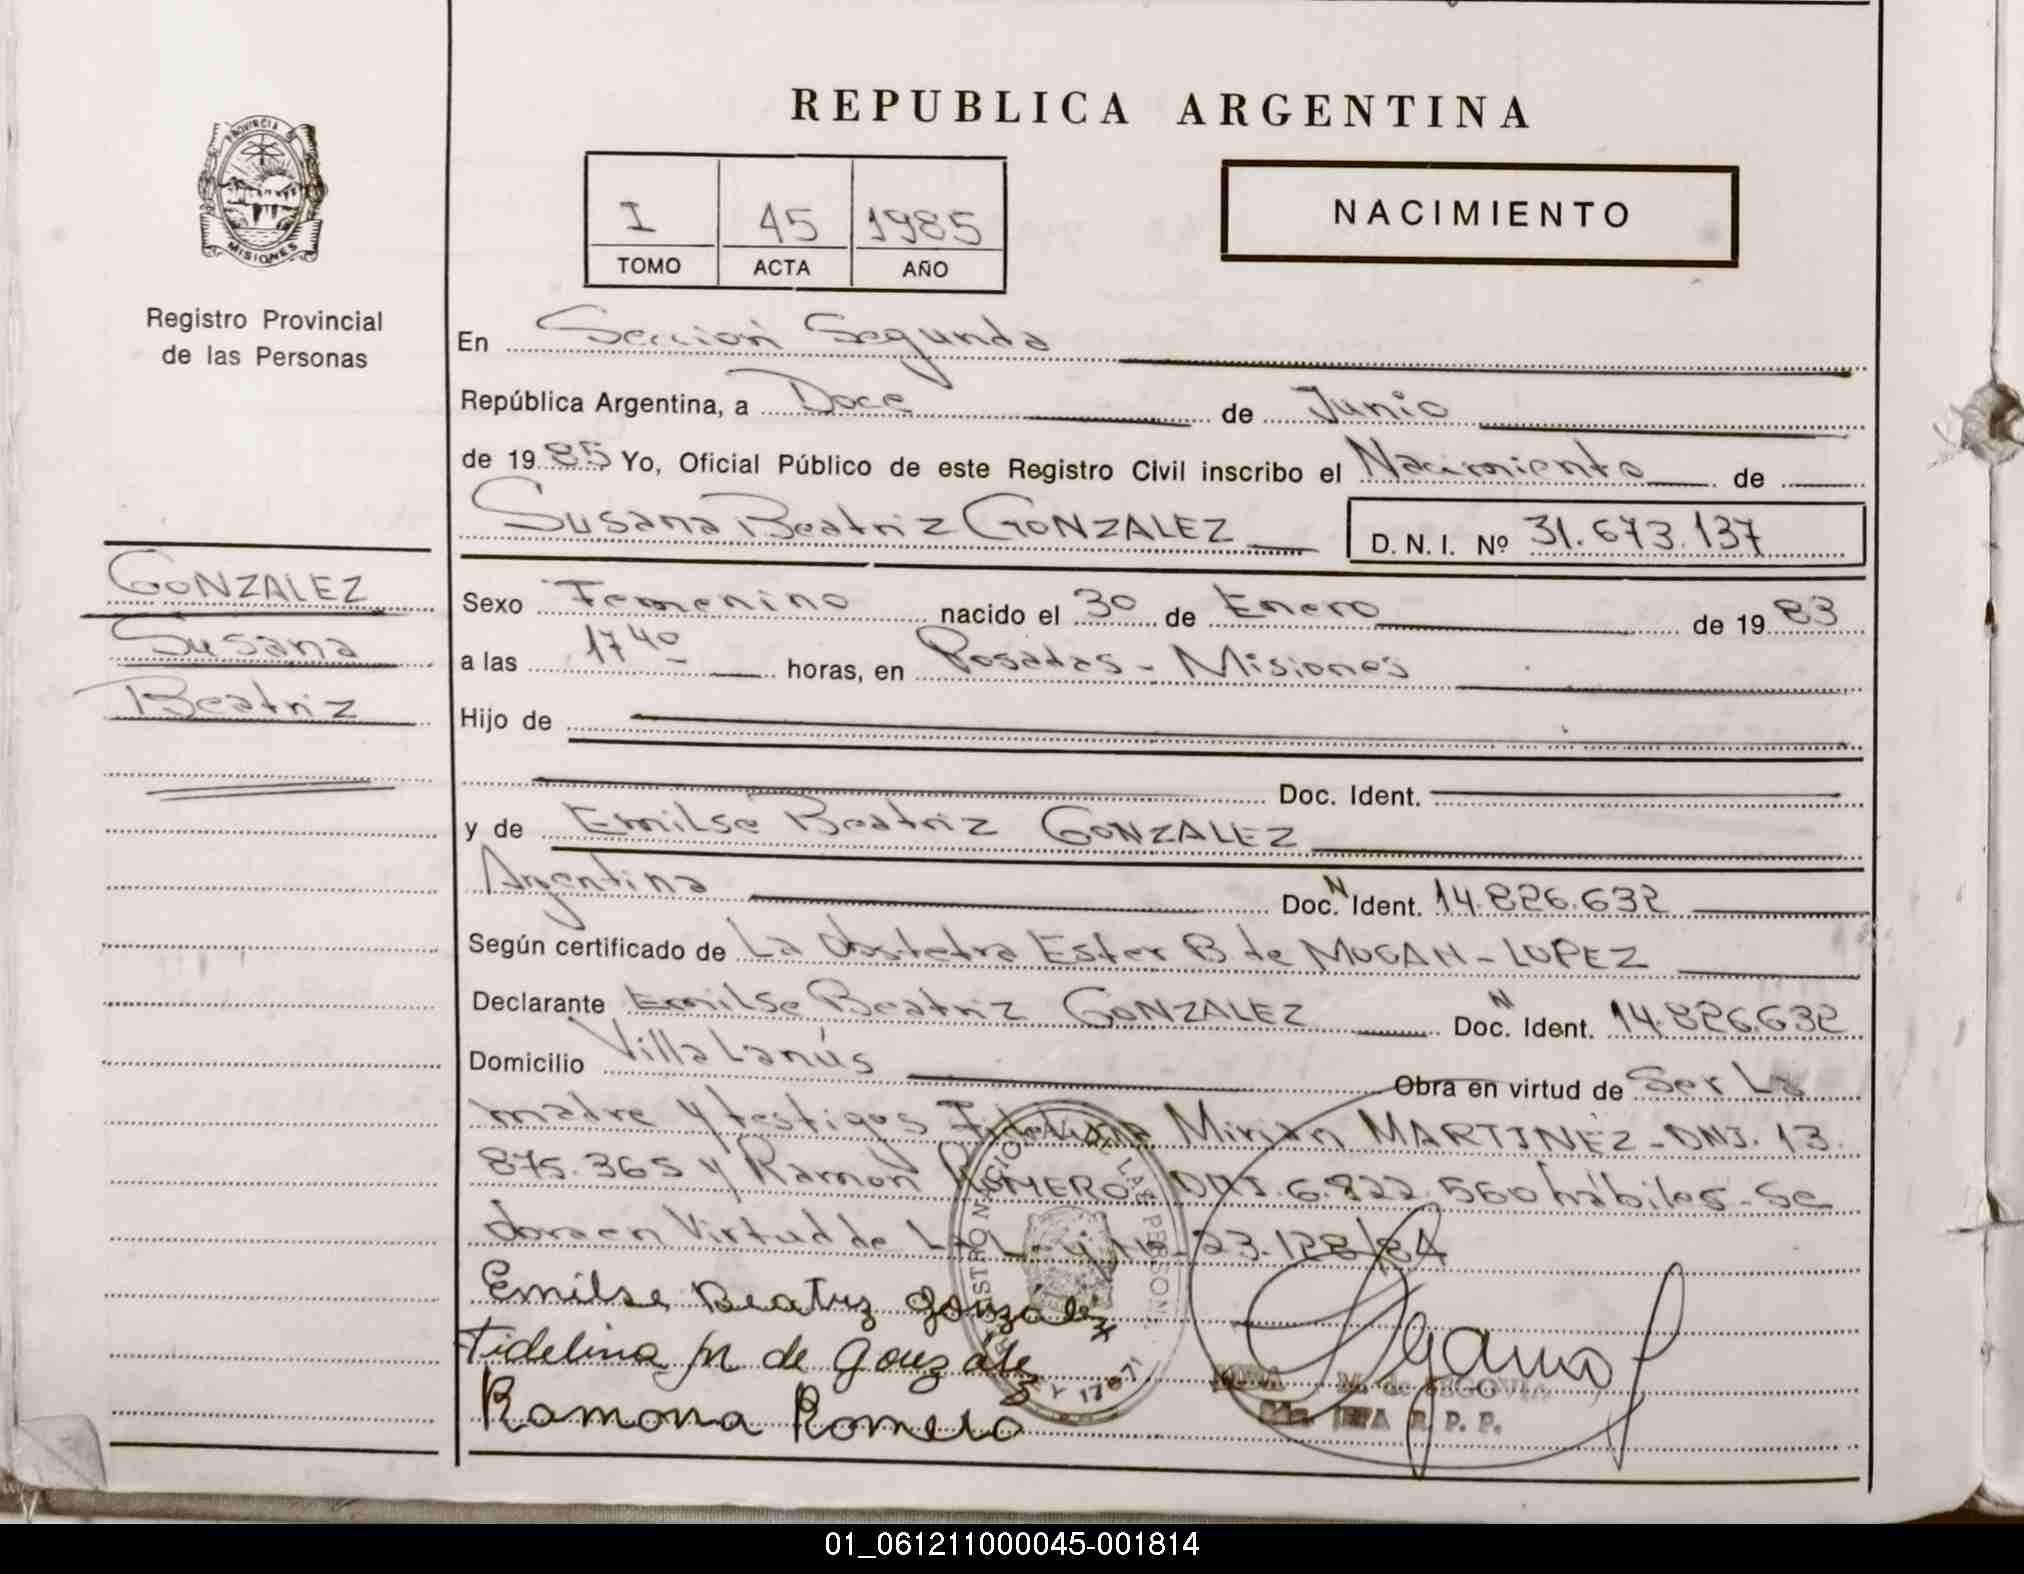 PROVINCIA DE
MISIONES
Registro Provincial
de las Personas
GONZALEZ
Susana
Beatriz
REPUBLICA ARGENTINA
I 45 1985
TOMO ACTA AÑO
NACIMIENTO
En Sección Segunda
República Argentina, a Doce de Junio
de 1985 Yo, Oficial Público de este Registro Civil inscribo el Nacimiento de
Susana Beatriz GONZALEZ D. N. I. Nº 31.673.137
Sexo Femenino nacido el 30 de Enero de 1983
a las 17 40 horas, en Posadas - Misiones
Hijo de
Doc. Ident.
y de Emilse Beatriz GONZALEZ
Argentina Doc. N Ident. 14.826.632
Según certificado de La Obstetra Ester B. de MOGAN - LOPEZ
Declarante Emilse Beatriz GONZALEZ Doc. N Ident. 14.826.632
Domicilio Villa Lanús Obra en virtud de Ser La
madre y testigos Fidelina Mirian MARTINEZ - DNI. 13.
875.365 y Ramón ROMERO DNI. 6.822.560 hábiles - Se
en Virtud de La Ley Nº 23.128/84
Emilse Beatriz González
Fidelina M de González
Ramona Romero
REGISTRO NACIONAL DE LAS PERSONAS
LEY 17671
M. de SEGOVIA
JEFA R. P. P.
01_061211000045-001814